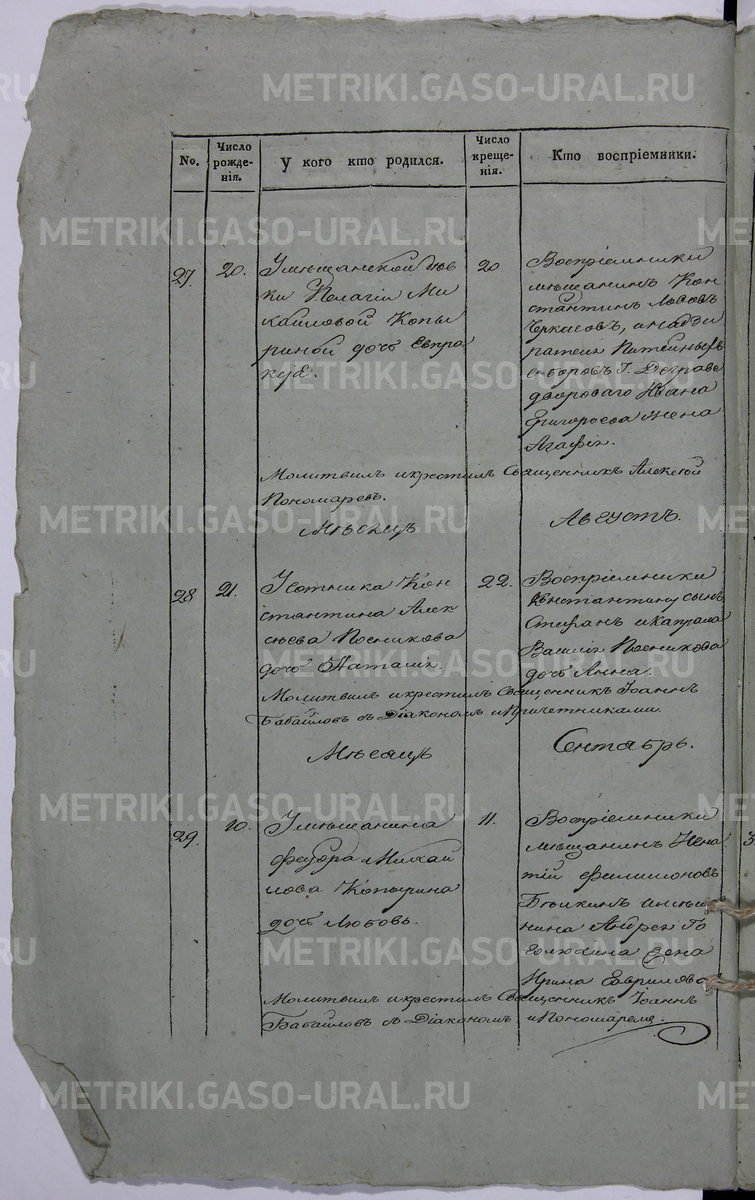 No.
Число рожде-нія.
У кого кто родился.
Число креще-нія.
Кто воспріемники.
27.
20.
У мѣщанской дѣв
ки Пелагіи Ми
хайловой Копы
риной дочь Евпра
20
Воспріемники
мѣщанинъ Кон
стантинъ
Черкасовъ,
Питейныхъ
сборовъ Г.
двороваго Ивана
Григорьева жена
Агафія.
Молитвилъ и крестилъ Священникъ Алексѣй
Пономаревъ.
Мѣсяцъ
Августъ.
28
21.
Сотника Кон
стантина Алек
сѣева Посникова
дочь Наталія.
22.
Воспріемники
Константину сынъ
Стефанъ и Капрала
Василія Посникова
дочь Анна.
Молитвилъ и крестилъ Священникъ Іоаннъ
Бабайловъ съ Діакономъ и Причетниками.
Мѣсяцъ
Сентябрь.
29.
10.
У мѣщанина
Федора Михай
лова Копырина
дочь Любовь.
11.
Воспріемники
мѣщанинъ Игна
тій Филимоновъ
Бѣлкинъ и мѣща
нина Андрея Го
жена
Ирина Гаврилова
Молитвилъ и крестилъ Священникъ Іоаннъ
Бабайловъ съ Діакономъ и Пономаремъ.
METRIKI.GASO-URAL.RU